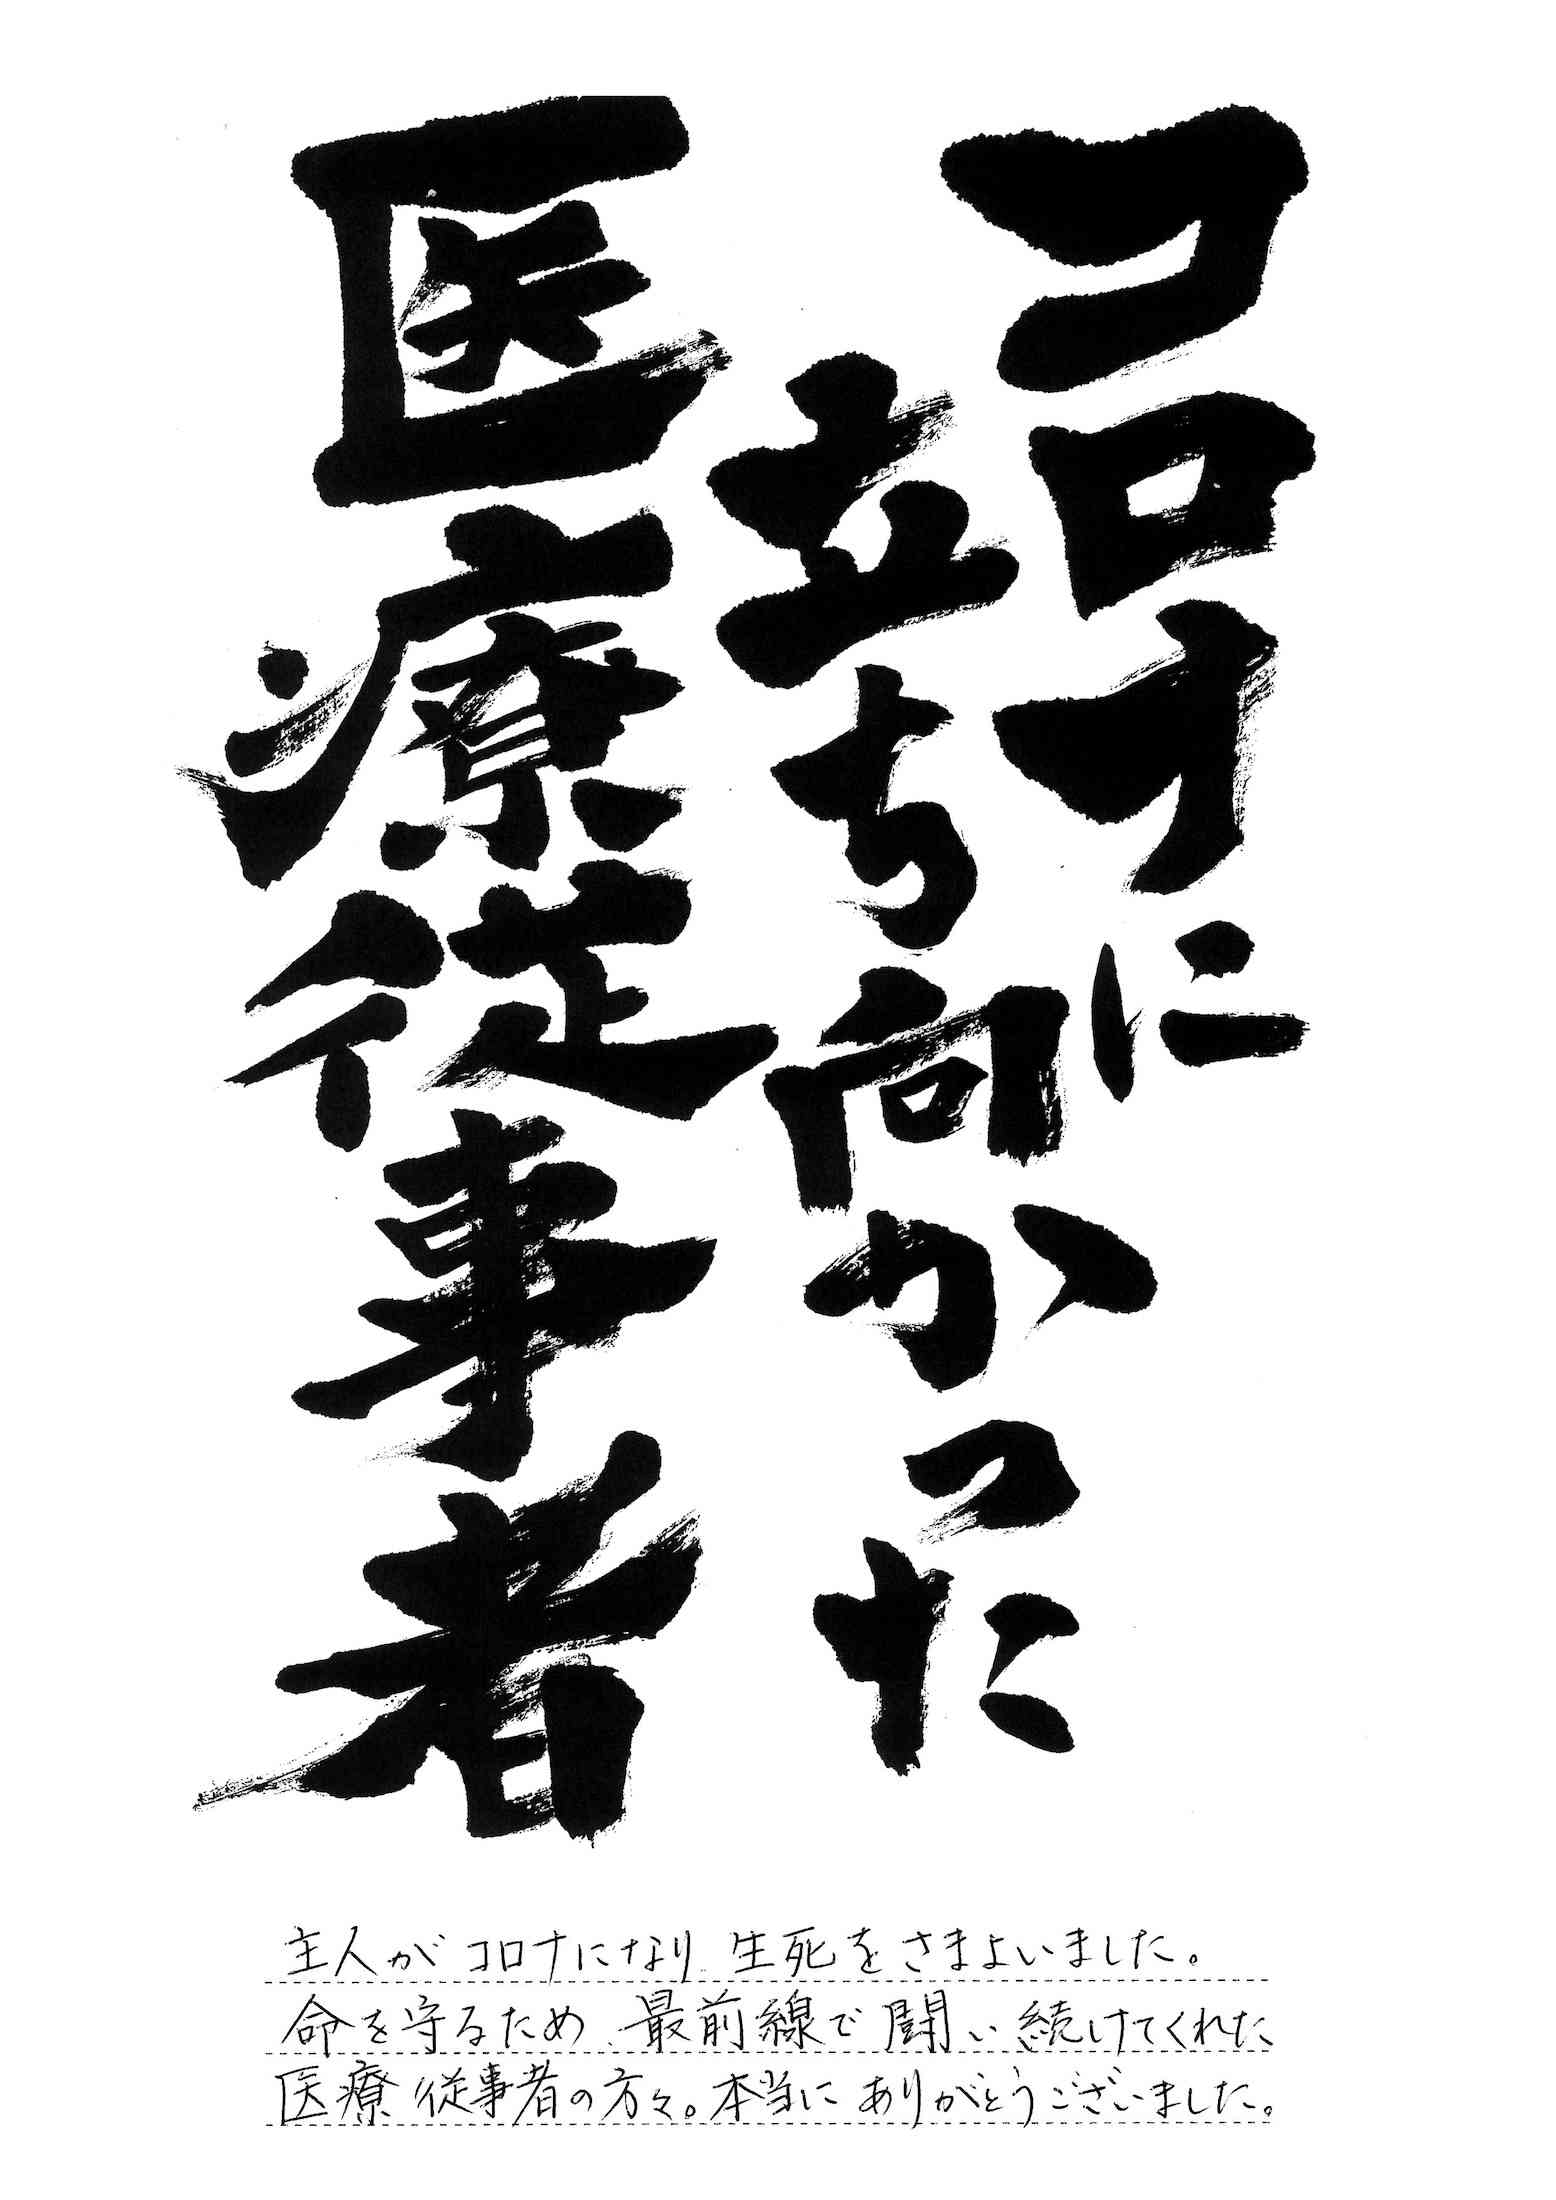 コロナに
立ち向かった
医療従事者
主人がコロナになり生死をさまよいました。
命を守るため、最前線で闘い続けてくれた
医療従事者の方々。本当にありがとうございました。